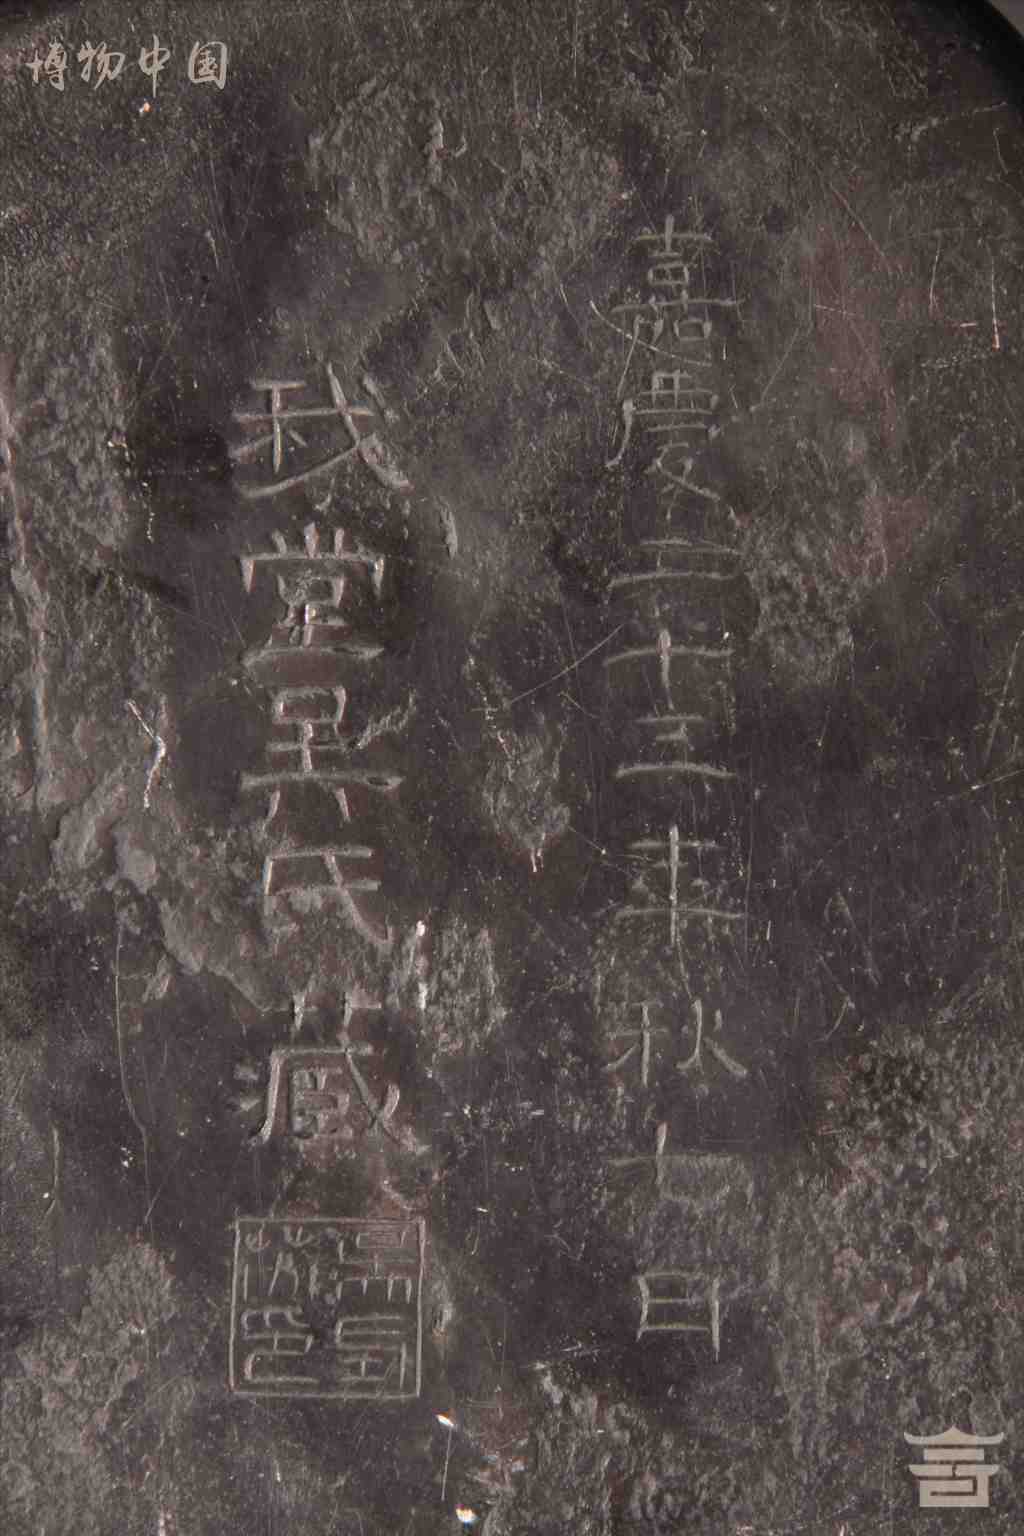 博物中国
嘉慶二十五年秋日
我堂吴氏藏